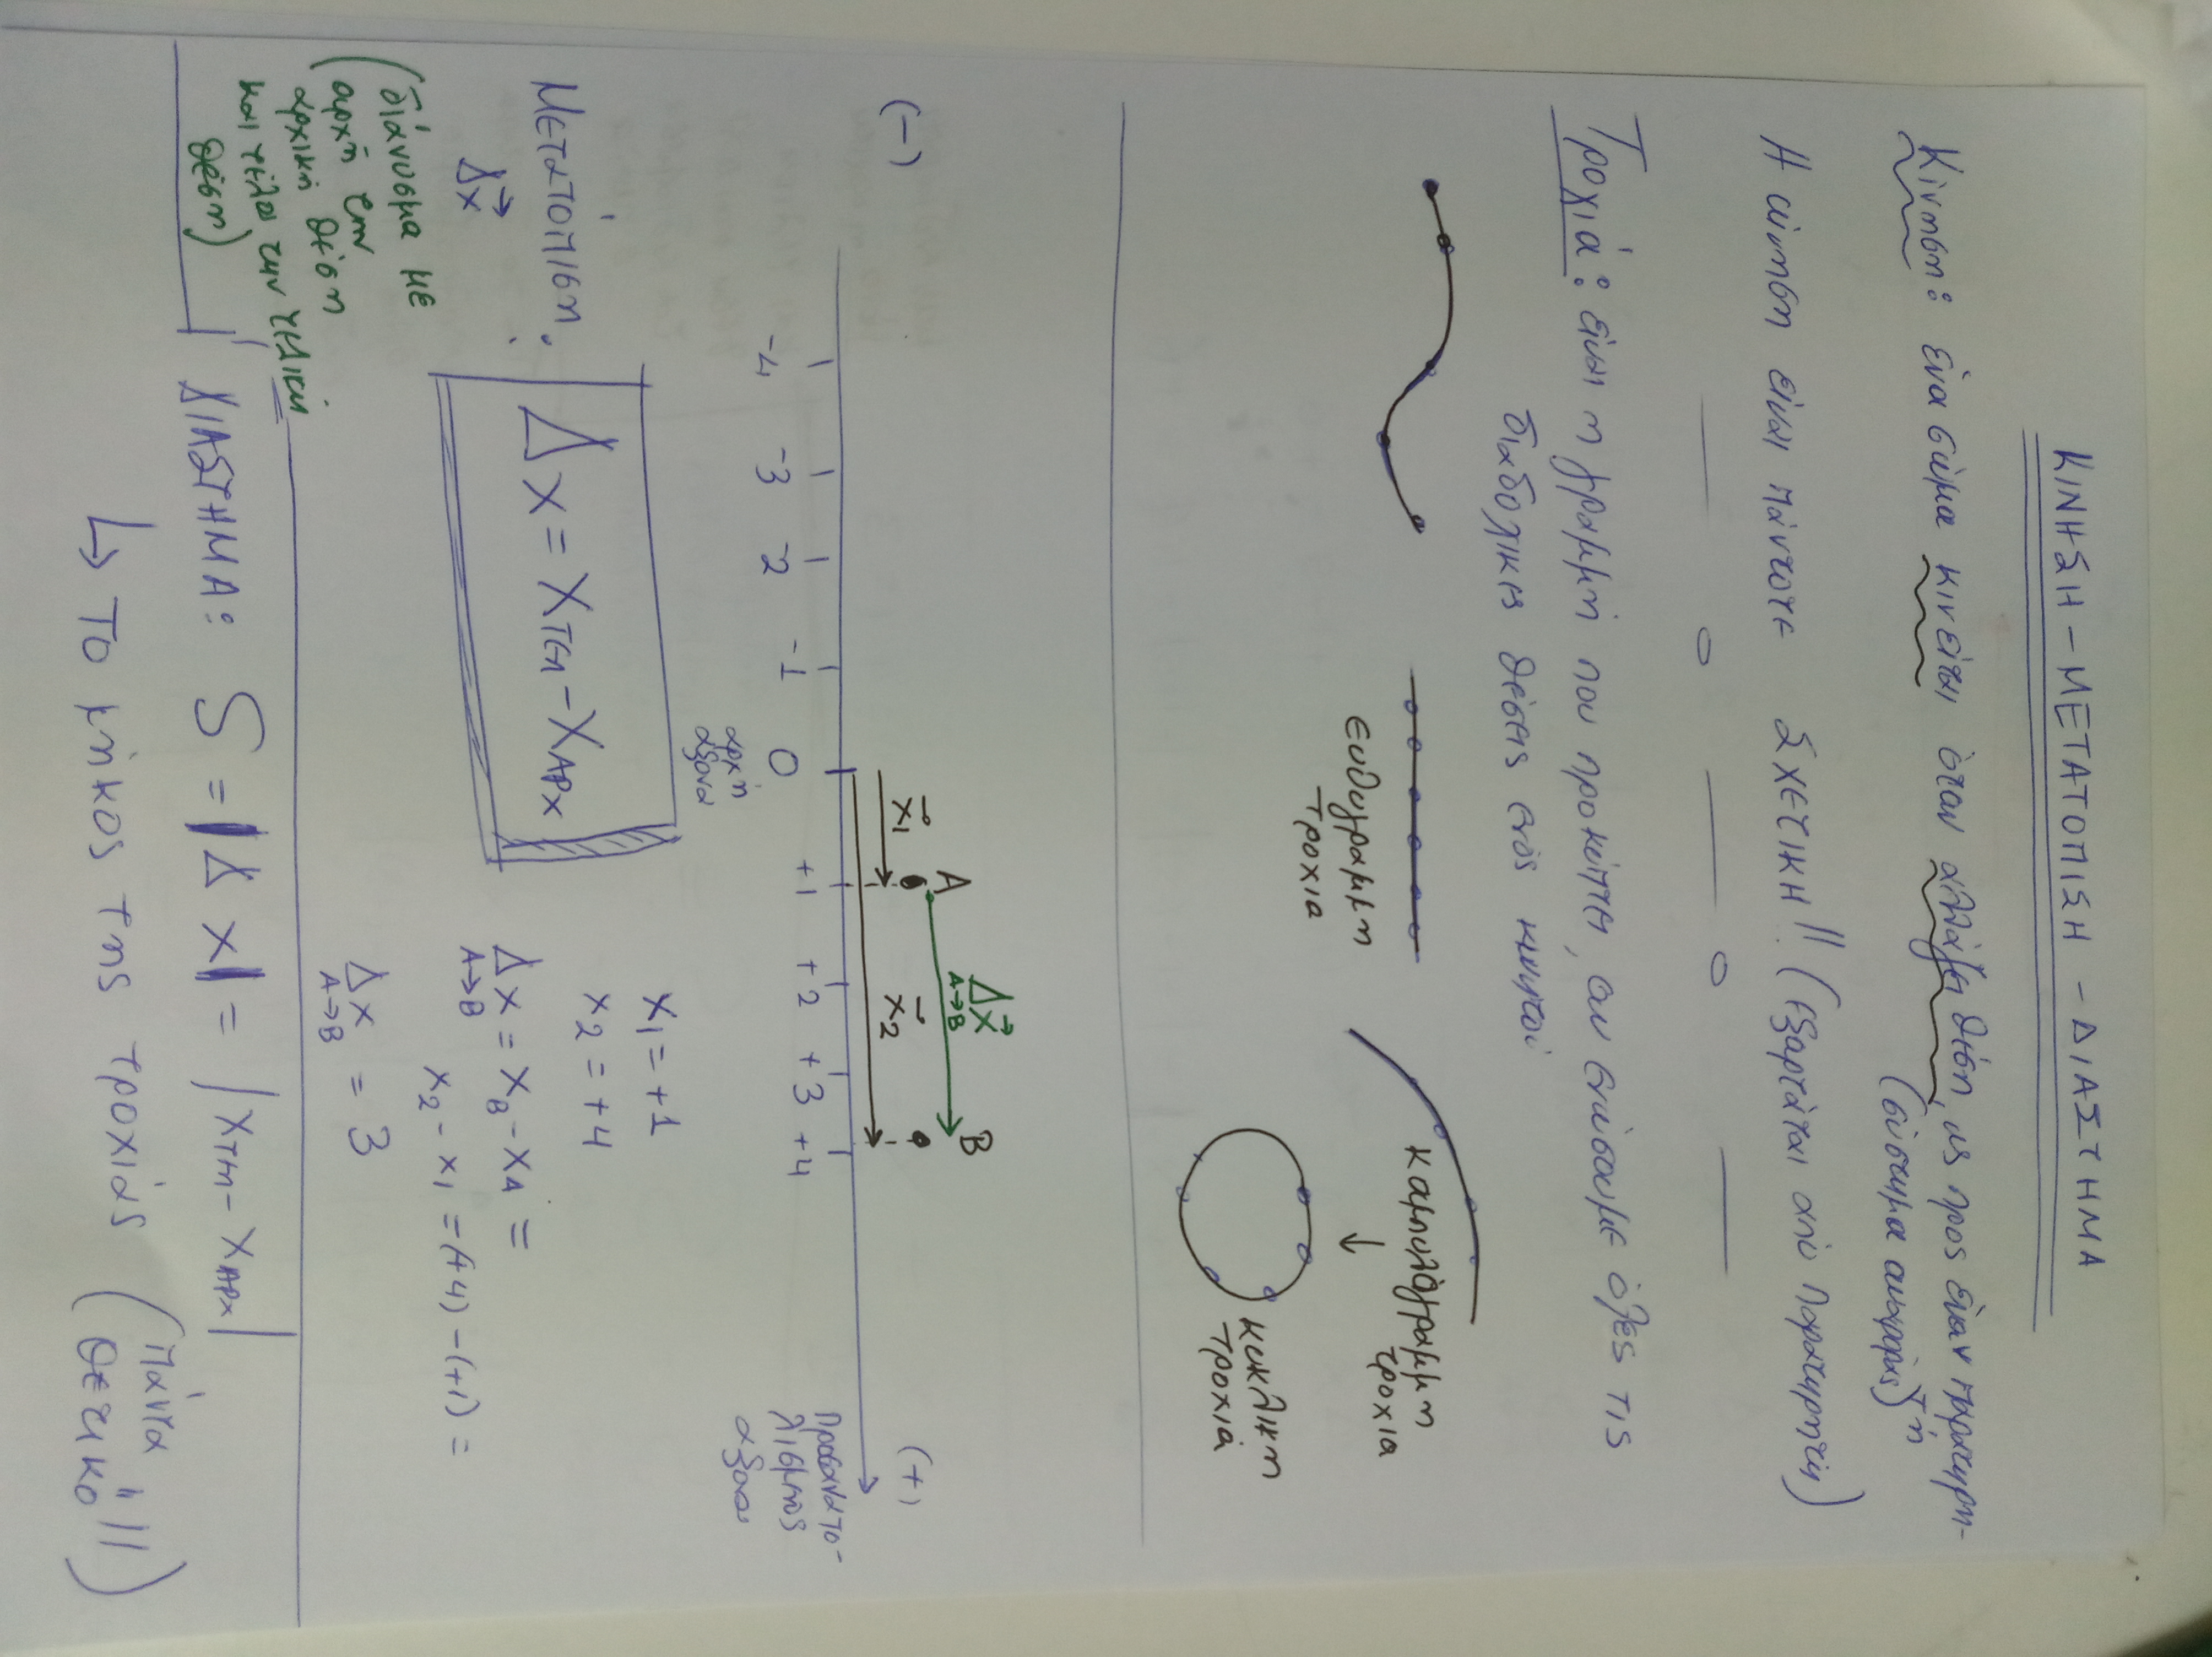 ΚΙΝΗΣΗ - ΜΕΤΑΤΟΠΙΣΗ - ΔΙΑΣΤΗΜΑ
Κίνηση: ένα σώμα κινείται όταν αλλάζει θέση, ως προς έναν παρατηρη-
τή
(σύστημα αναφοράς)
Η κίνηση είναι πάντοτε ΣΧΕΤΙΚΗ!! (εξαρτάται από παρατηρητή)
Τροχιά: είναι η γραμμή που προκύπτει, αν ενώσουμε όλες τις
διαδοχικές θέσεις ενός κινητού
ευθύγραμμη
τροχιά
καμπυλόγραμμη
τροχιά
κυκλική
τροχιά
(-) (+)
A Δx⃗ B
A→B
x⃗1 x⃗2
-4 -3 2 -1 0 +1 +2 +3 +4
αρχή
άξονα
Προσανατο-
λισμός
άξονα
Μετατόπιση:
Δx⃗
(διάνυσμα με
αρχή την
αρχική θέση
και τέλος την τελική
θέση)
Δx = xτελ - xΑΡΧ
x1 = +1
x2 = +4
Δx = xB - xA =
A→B
x2 - x1 = (+4) - (+1) =
Δx = 3
A→B
ΔΙΑΣΤΗΜΑ: S = |Δx| = |xτελ - xΑΡΧ|
↳ Το μήκος της τροχιάς (πάντα
θετικό!!)